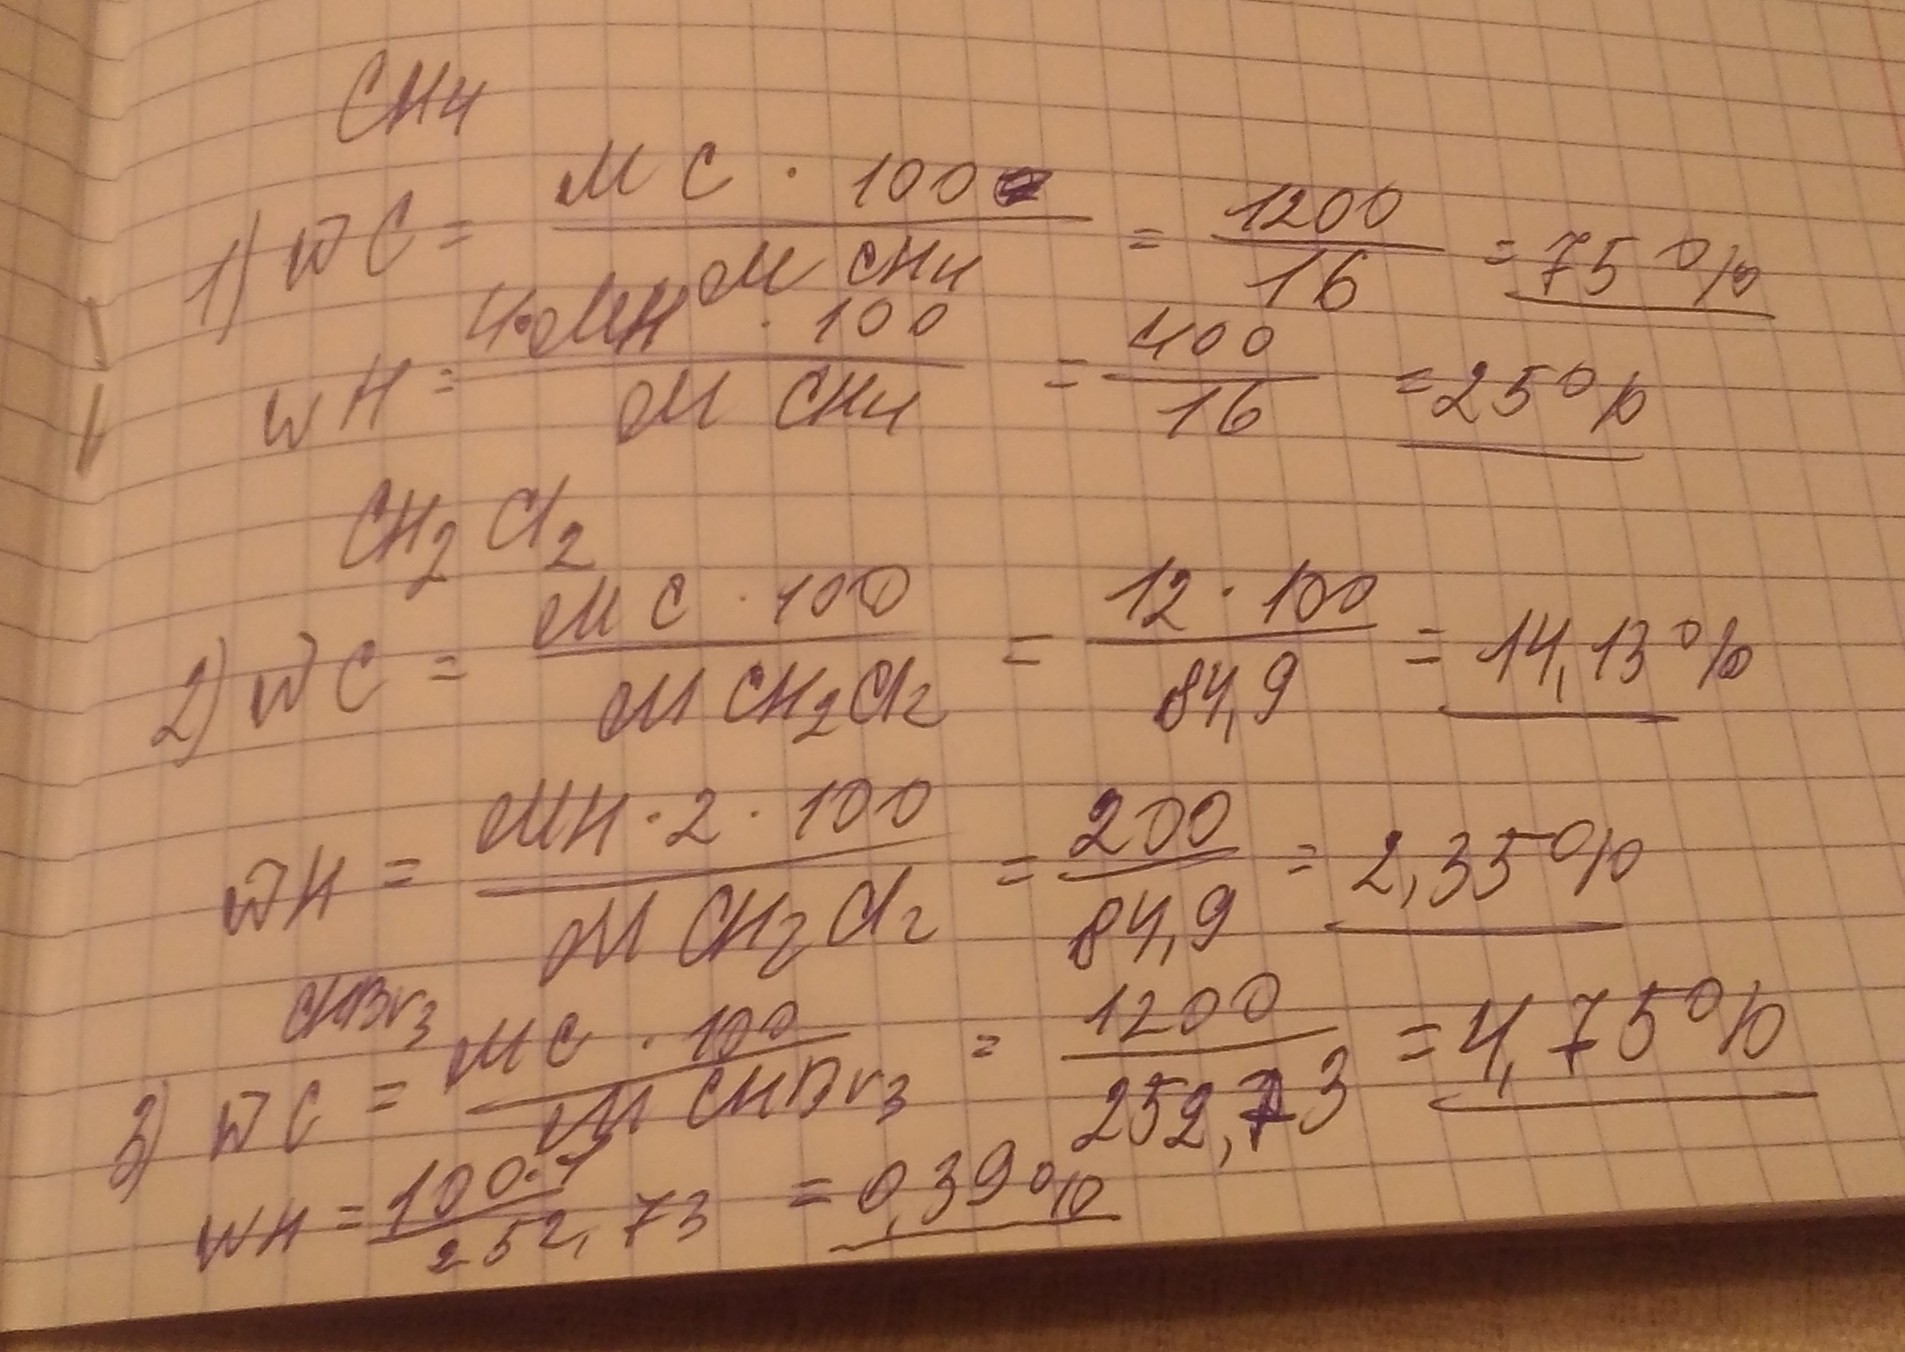 CH4
1) wC = MC · 100 / M CH4 = 1200 / 16 = 75%
wH = 4·MH · 100 / M CH4 = 400 / 16 = 25%
CH2Cl2
2) wC = MC · 100 / M CH2Cl2 = 12 · 100 / 84,9 = 14,13%
wH = MH · 2 · 100 / M CH2Cl2 = 200 / 84,9 = 2,35%
CHBr3
3) wC = MC · 100 / M CHBr3 = 1200 / 252,73 = 4,75%
wH = 100·1 / 252,73 = 0,39%